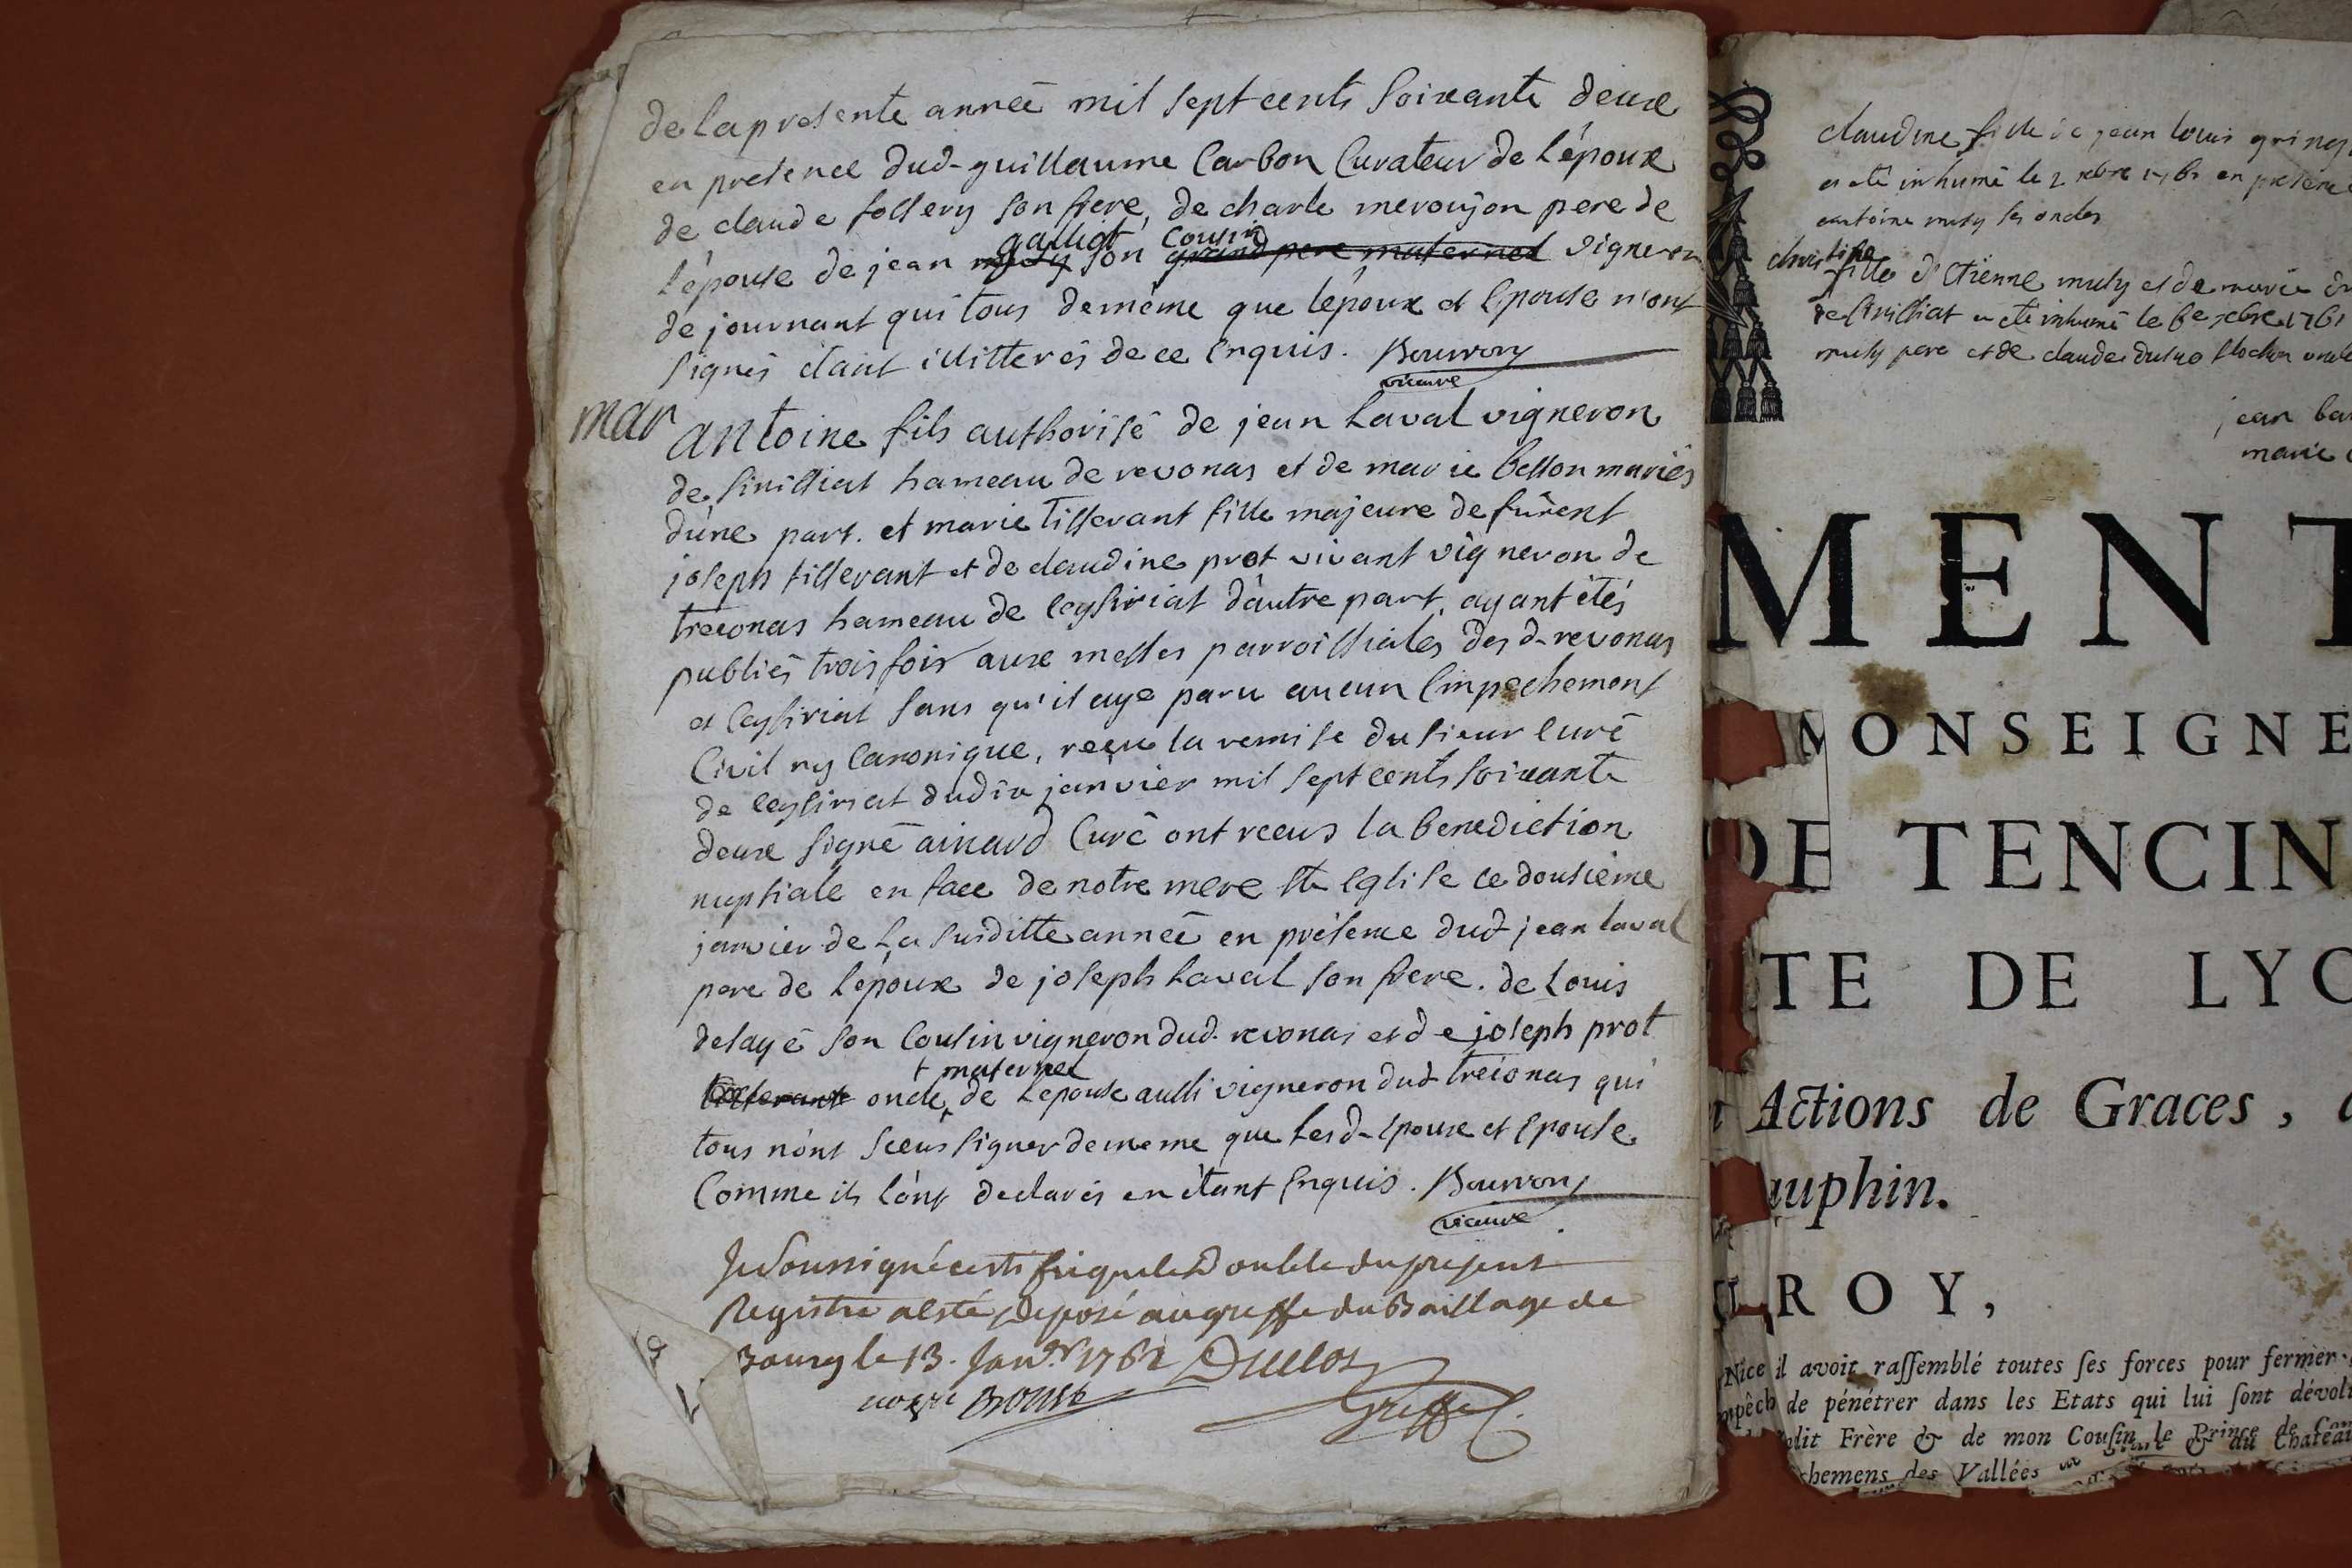 de la presente anneé mil sept cents soixante deux
en presence dud- guillaume Carbon Curateur de l'époux
de claude follery son frere, de charle merousjon pere de
galliot cousin
l'épouse de jean son grand pere maternel vigneron
de journant qui tous de même que l'époux et Epouse n'ont
signés étant illitterés de ce Enquis. Bouvron
vicaire
mar
antoine fils authorisé de jean Laval vigneron
de sinissiat hameau de revonas et de marie besson mariés
d'une part. et marie tisserant fille majeure de furent
joseph tisserant et de claudine prot vivant vigneron de
treconas hameau de Ceysiriat d'autre part, ayant étés
publiés trois fois aux messes parroissiales des d- revonas
et Ceysiriat sans qu'il aye paru aucun Empechement
Civil ny Canonique, reçu la remise du sieur Curé
de Ceysiriat du dix janvier mil sept cents soixante
deux signé ainard Curé ont receus la benediction
nuptiale en face de notre mere ste Eglise ce dousieme
janvier de La susditte anneé en présence dud jean laval
pere de L'époux de joseph Laval son frere. de Louis
delayé son Cousin vigneron dud. revonas et de joseph prot
+ maternel
tisserant oncle de L'epouse aussi vigneron dud treconas qui
tous n'ont sceus signer de meme que Les d- Epoux et Epouse
Comme ils l'ont declarés en étant Enquis. Bouvron
vicaire
Je soussigné certifie que le Double du present
Registre a esté Deposé au greffe du Baillage de
Bourg le 13. Janvr 1762 Duclos
Greffe
claudine fille de jean louis
a eté inhumé le 2 en presence
antoine muty ses oncles
christine
fille d'étienne muty et de marie
de sinissiat a eté inhumé le 6e 1761
muty pere et de claude oncle
jean
marie
MENT
MONSEIGNE
DE TENCIN
TE DE LYO
Actions de Graces,
auphin.
ROY,
Nice il avoit raſſemblé toutes ſes forces pour fermer
mpêch de pénétrer dans les Etats qui lui ſont dévol
edit Frère & de mon Couſin le Prince de Con
chemens des Vallées & du Château